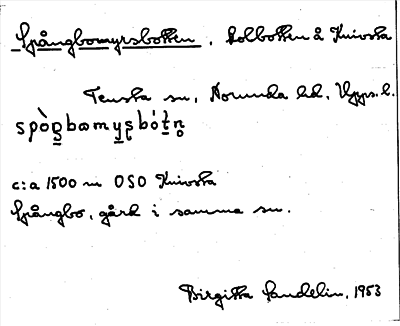 Spångbomyrsbotten, kolbotten å Knivsta
Tensta sn, Norunda hd, Upps.l.
spò̀ŋbωmyʂbót̀n̥
c:a 1500 m OSO Knivsta
Spångbo, gård i samma sn.
Birgitta Sandelin, 1953